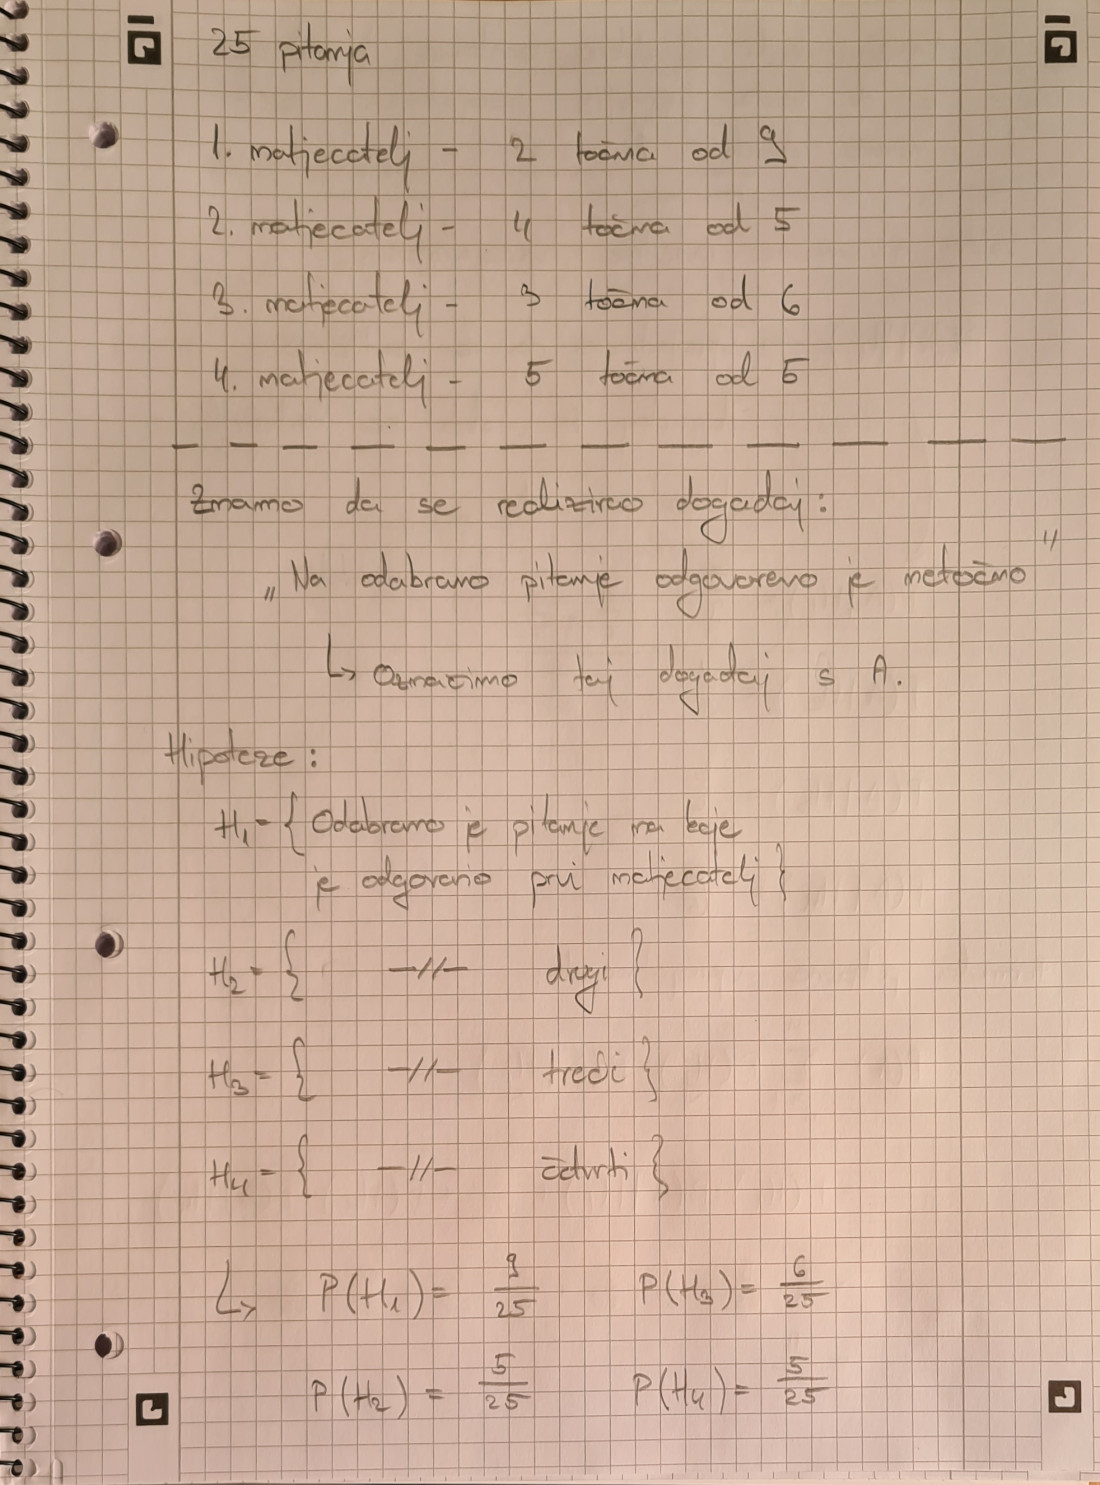 25 pitanja
1. natjecatelj - 2 točna od 9
2. natjecatelj - 4 točna od 5
3. natjecatelj - 3 točna od 6
4. natjecatelj - 5 točna od 5
Znamo da se realizirao događaj:
„Na odabrano pitanje odgovoreno je netočno"
↳ Označimo taj događaj s A.
Hipoteze:
H₁ = { Odabrano je pitanje na koje
je odgovorio prvi natjecatelj }
H₂ = { —//— drugi }
H₃ = { —//— treći }
H₄ = { —//— četvrti }
↳ P(H₁) = 9/25 P(H₃) = 6/25
P(H₂) = 5/25 P(H₄) = 5/25